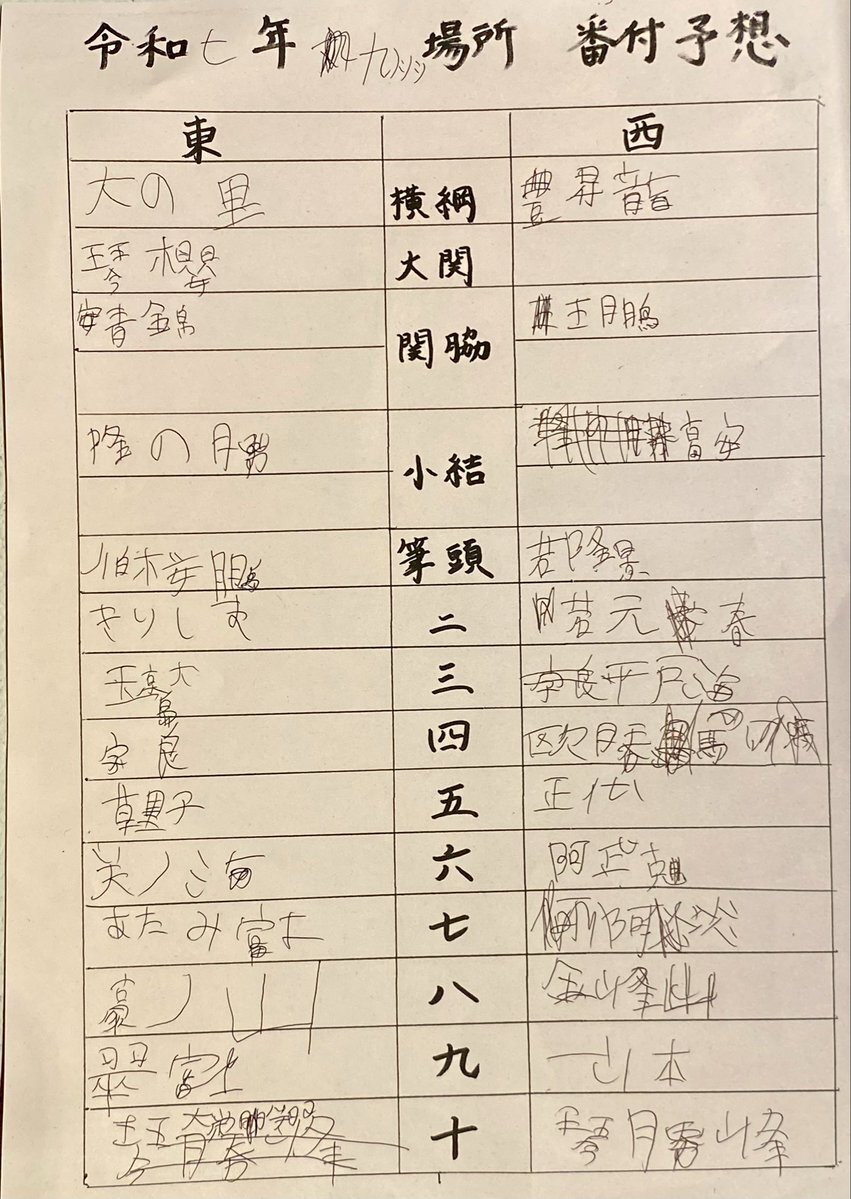 令和七年 九州場所 番付予想
東 西
大の里 横綱 豊昇龍
琴櫻 大関
安青錦 関脇 王鵬
隆の勝 小結 高安
伯桜鵬 筆頭 若隆景
きりしま 二 若元春
玉鷲 三 平戸海
四 欧勝馬
草野 五 正代
美ノ海 六 阿武剋
あたみ富士 七 阿炎
豪ノ山 八 金峰山
翠富士 九 一山本
十 琴勝峰